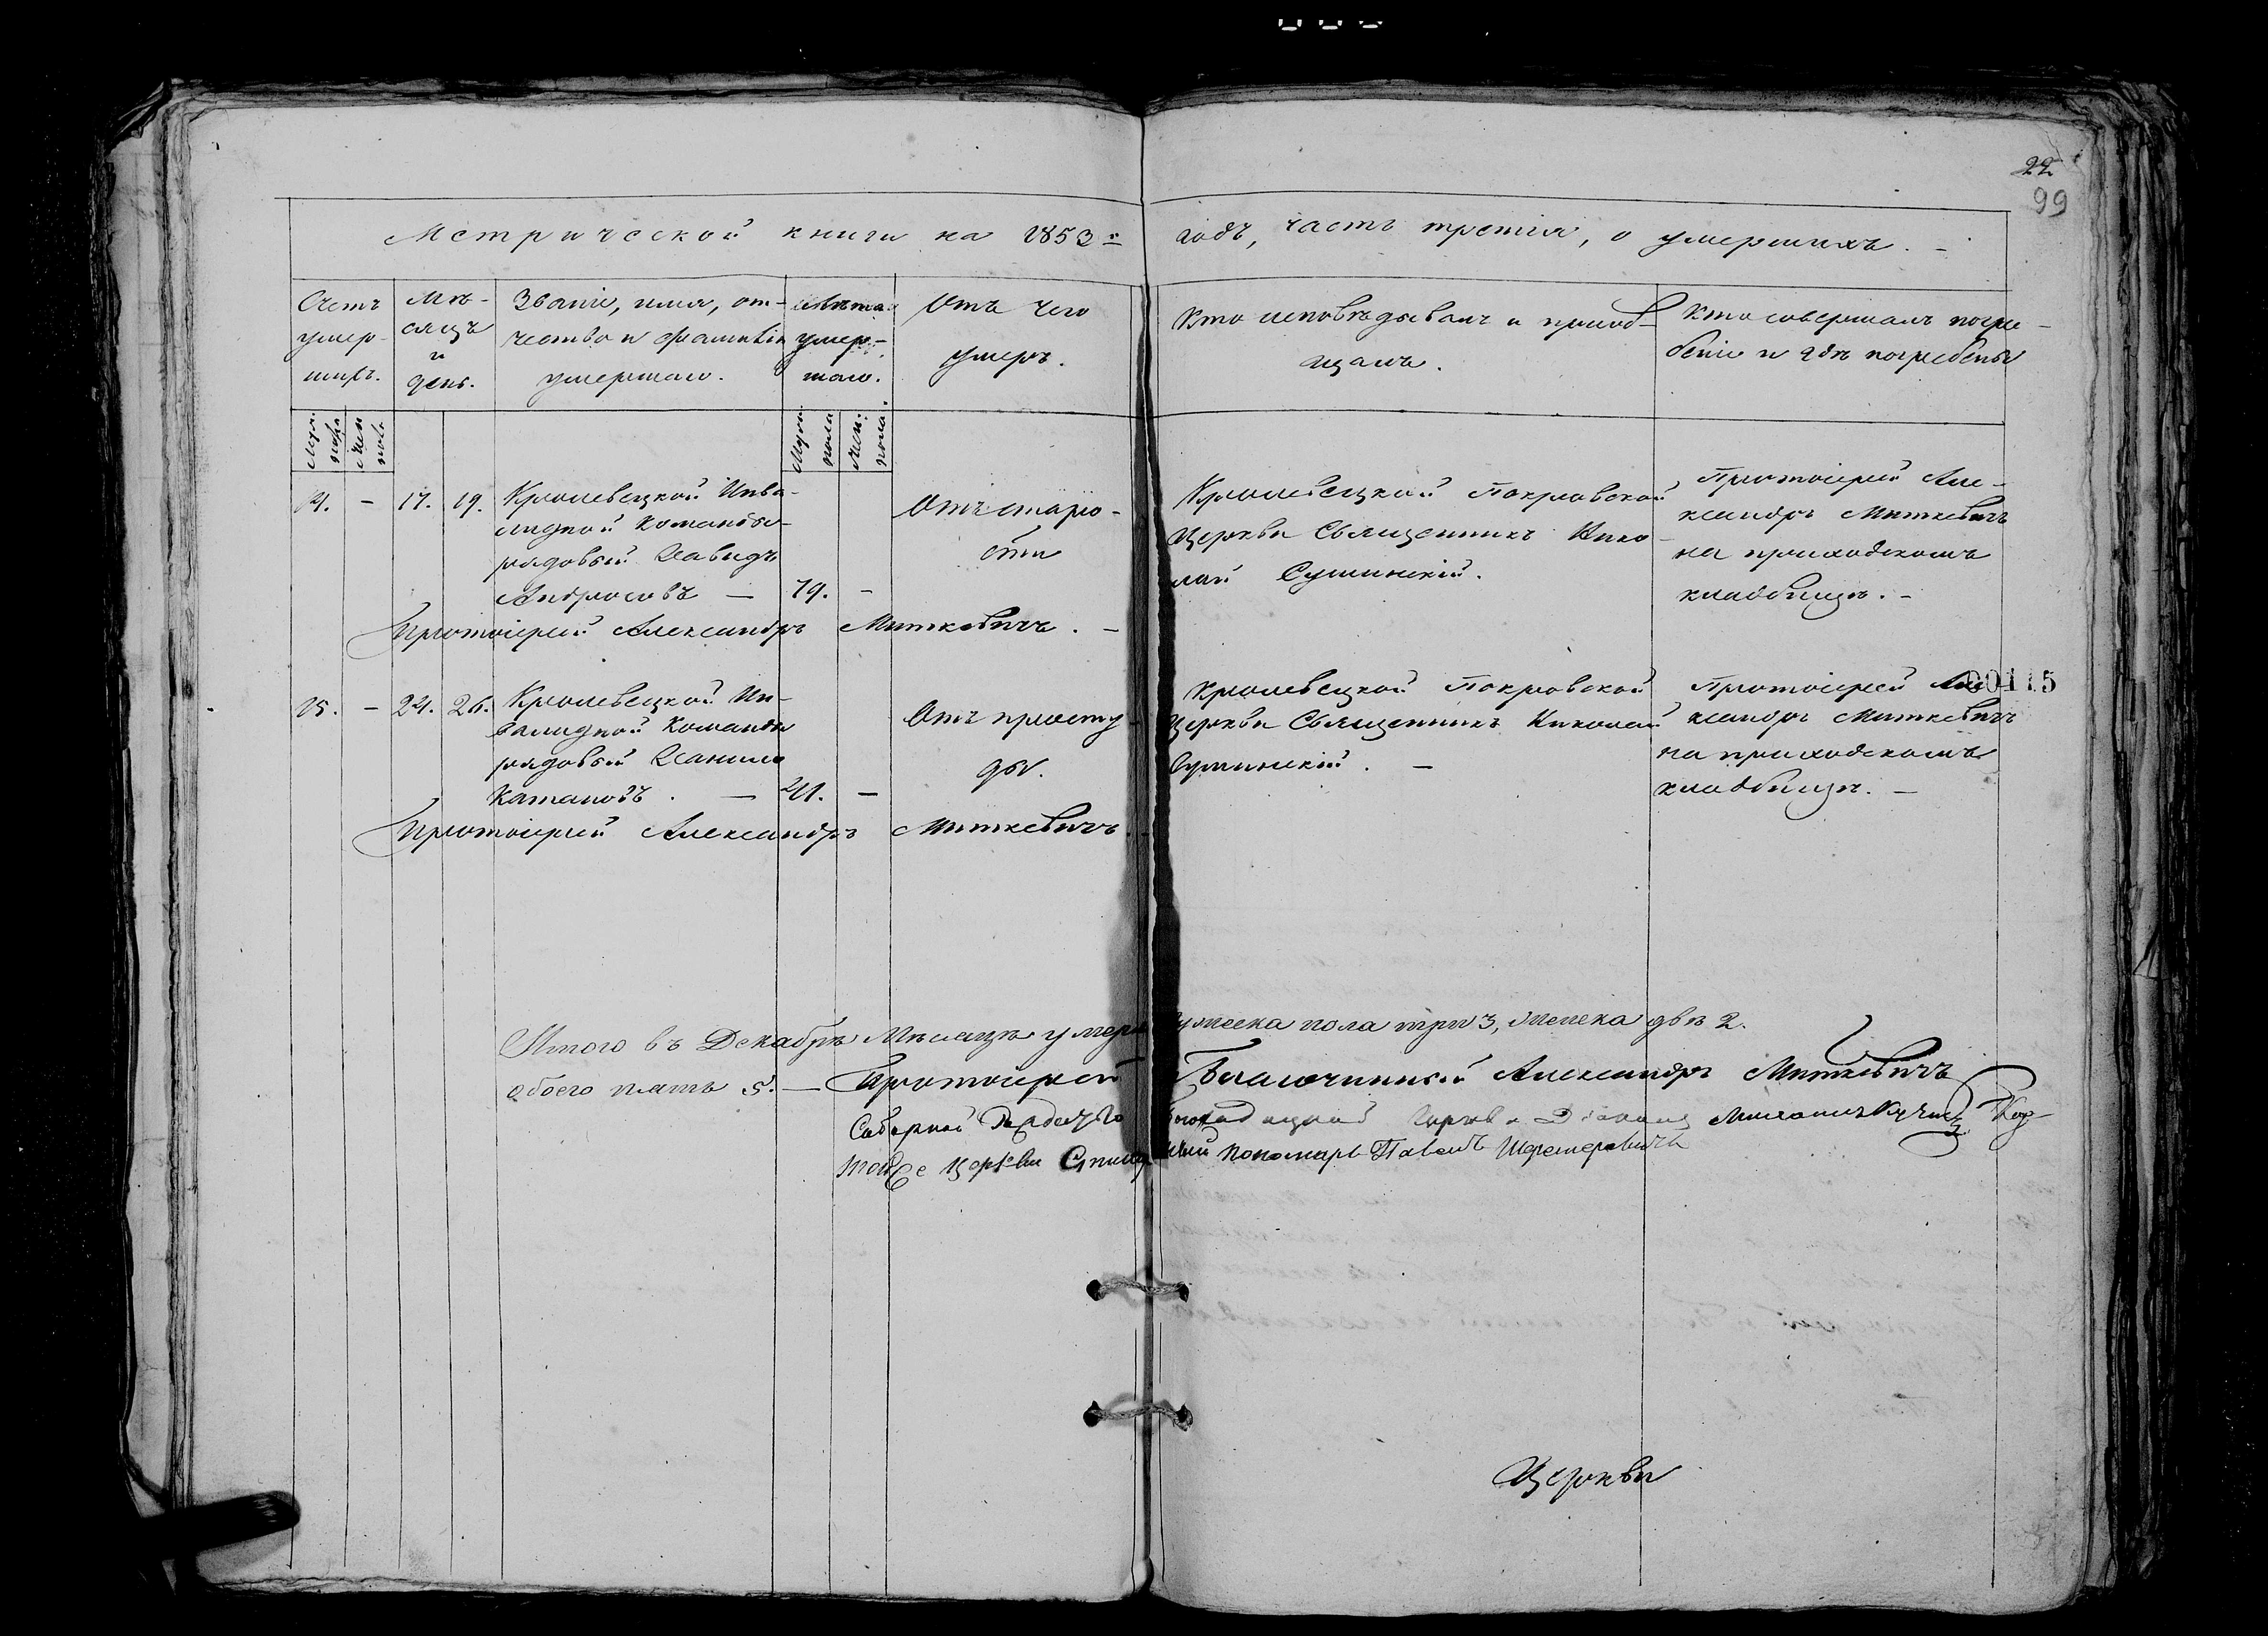 22
99
Метрической книги на 1853й годъ, часть третія, о умершихъ. —
Счетъ умер-шихъ.
Мѣ-сяцъ и день.
Званіе, имя, от-
чество и фамилія
умершаго.
Лѣта
умер-
шаго.
Отъ чего
умеръ.
Кто исповѣдывалъ и пріоб-
щалъ.
Кто совершалъ погре-
беніе и гдѣ погребены
Муж. пола
Жен. пола
Муж. пола
Жен. пола
14. — 17. 19. Кролевецкой Инва-
лидной Команды
рядовый Давидъ
Андросовъ — 79. —
Отъ старо-
сти
Кролевецкой Покровской
Церкви Священникъ Нико-
лай Сушинскій.
Протоіерей Але-
ксандръ Миткевичъ
на приходскомъ
кладбищѣ. —
Протоіерей Александръ Миткевичъ. —
15. — 24. 26. Кролевецкой Ин-
валидной Команды
рядовый Данило
Катановъ. — 41. —
Отъ просту-
ды.
Кролевецкой Покровской
Церкви Священникъ Николай
Сушинскій. —
Протоіерей Але
00115
ксандръ Миткевичъ
на приходскомъ
кладбищѣ. —
Протоіерей Александръ Миткевичъ.
Итого въ Декабрѣ Мѣсяцѣ умерло мужеска пола три 3, женска двѣ 2.
обоего пять 5. — Протоіерей Благочинный Александръ Миткевичъ
Соборной Рождество Богородицкой Церкви Діаконъ
Тойже Церкви Пономарь Павелъ Шереметевичъ
Церкви